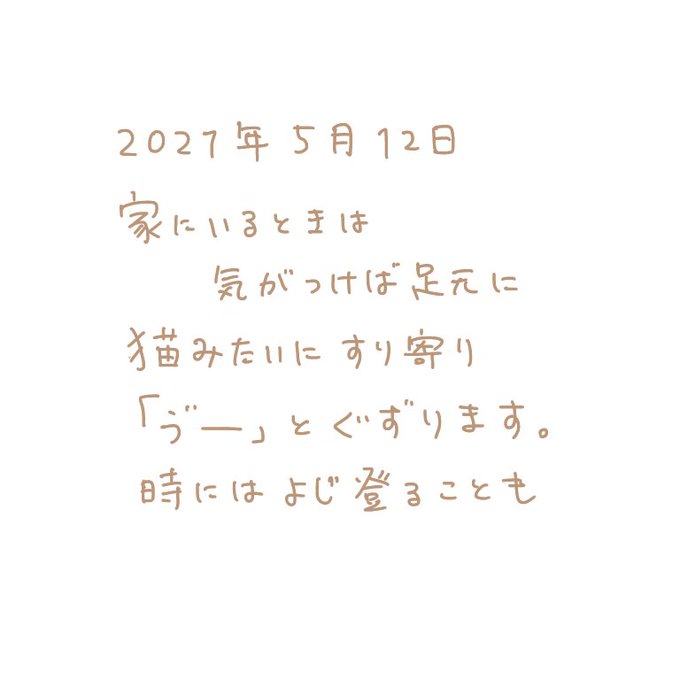 2027年5月12日
家にいるときは
気がつけば足元に
猫みたいにすり寄り
「ゔー」とぐずります。
時にはよじ登ることも